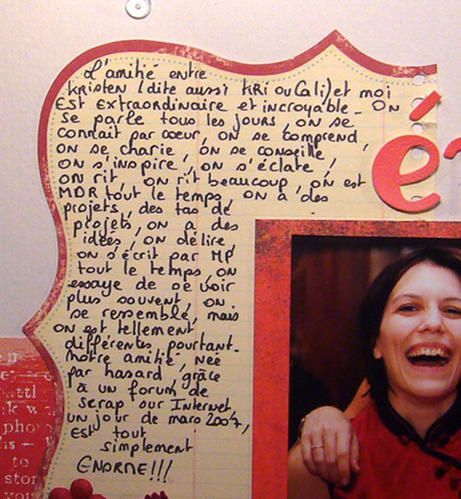 L'amitié entre
Kristen (dite aussi KRi ou Cali) et moi
Est extraordinaire et incroyable. On
se parle tous les jours, on se
connait par coeur, on se comprend,
on se charie, on se conseille,
on s'inspire, on s'éclate,
on rit, on rit beaucoup, on est
MDR tout le temps, on a des
projets, des tas de
projets, on a des
idées, on délire,
on s'écrit par MP
tout le temps, on
essaye de se voir
plus souvent, on
se ressemble, mais
on est tellement
différentes pourtant.
Notre amitié, née
par hasard, grâce
à un forum de
scrap sur Internet
un jour de mars 2007,
EST tout
simplement
ENORME!!!
é
to
stor
you